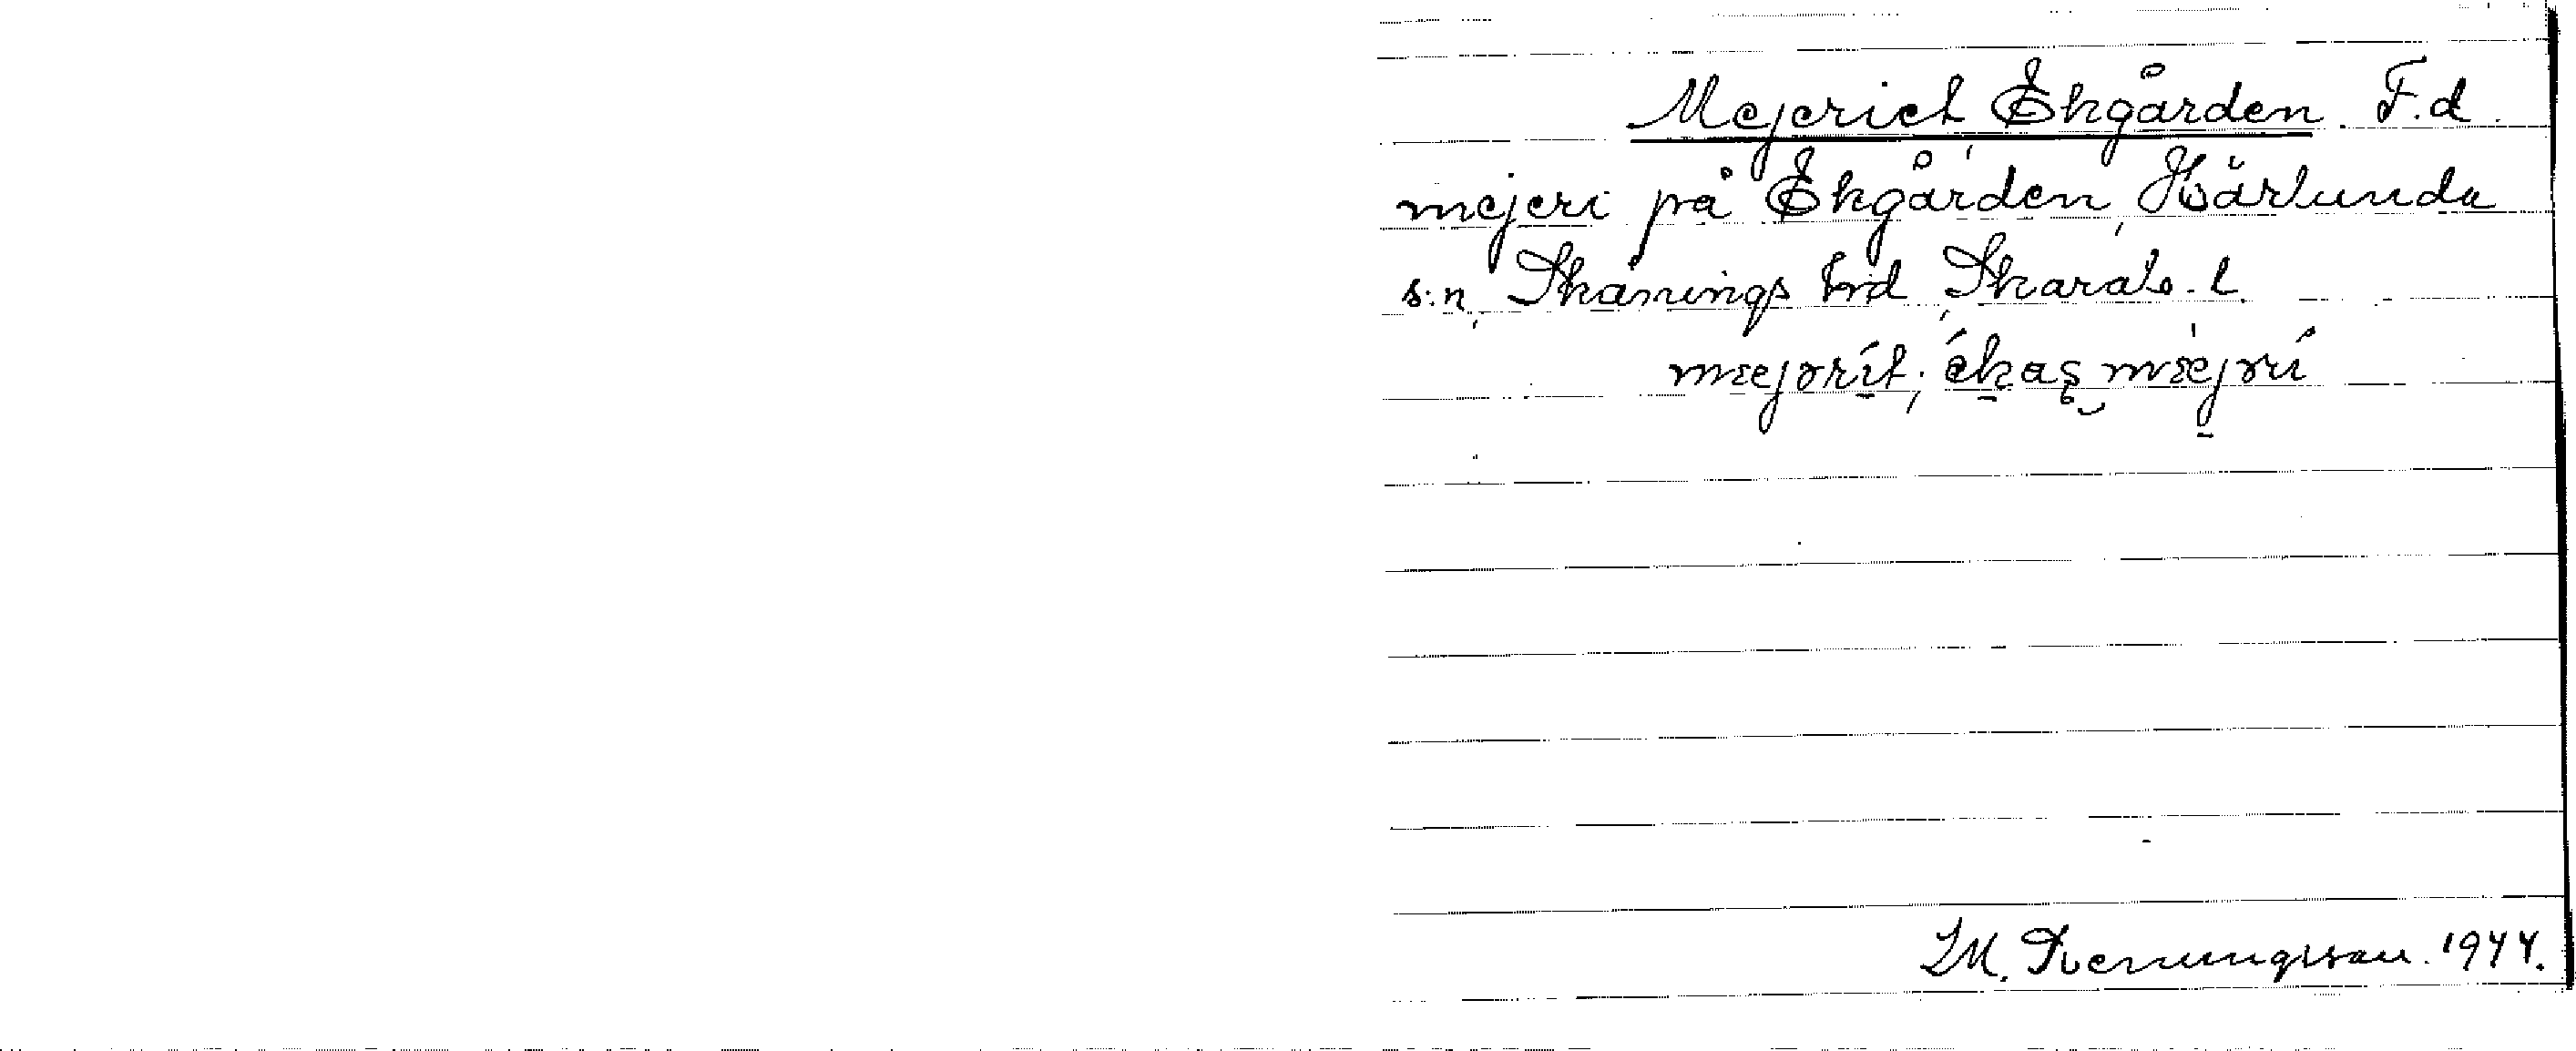 Mejeriet, Ekgården F.d.
mejeri på Ekgården, Härlunda
s:n, Skånings hrd, Skarab. l.
mejərít; ékas mejəri
1944.